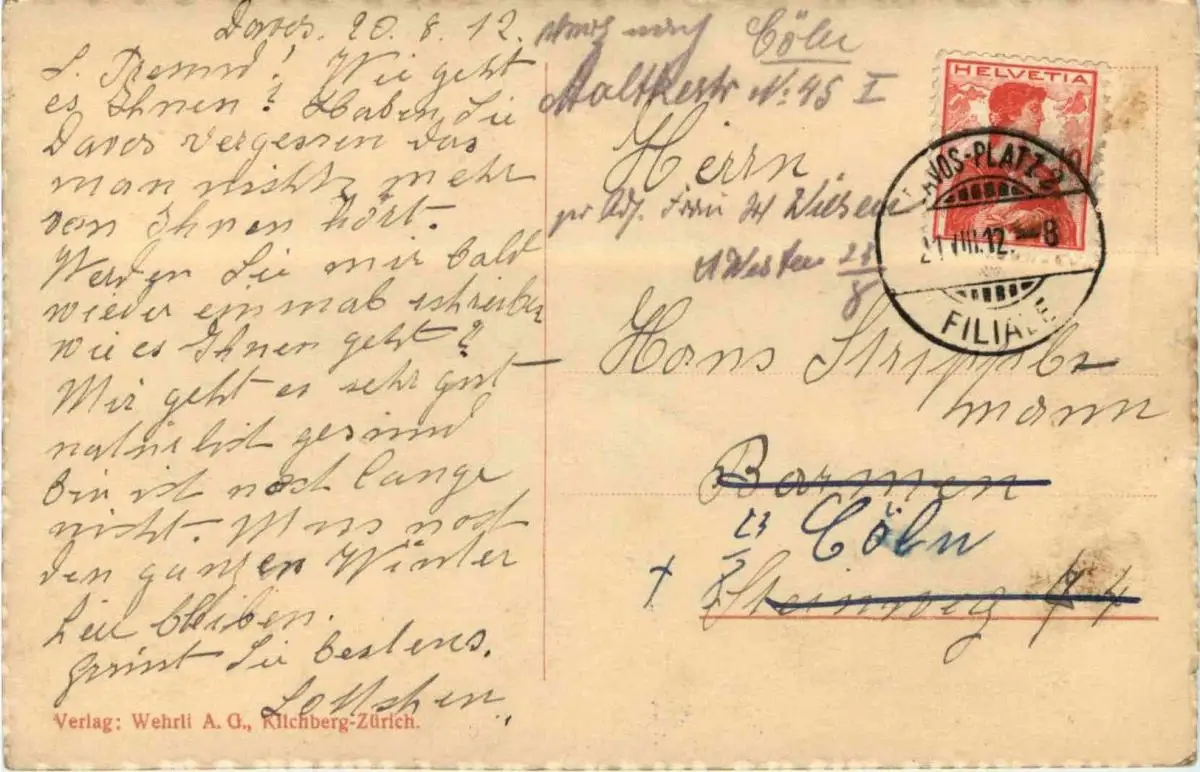 Davos. 20. 8. 12.
L. Freund! Wie geht
es Ihnen? Haben Sie
Davos vergessen das
man nichts mehr
von Ihnen hört.
Werden Sie mir bald
wieder einmal schreiben
wie es Ihnen geht?
Mir geht es sehr gut
natürlich gesund
bin ich noch lange
nicht. Muss noch
den ganzen Winter
hier bleiben.
Grüsst Sie bestens.
Lottchen
Verlag: Wehrli A. G., Kilchberg-Zürich.
nach Cöln
Moltkestr No. 45 I
Herrn
Frau
28/8
Hans Strippel
mann
Barmen
Cöln
Steinweg 44
HELVETIA
10
DAVOS-PLATZ 2
21 VIII.12. -8
FILIALE